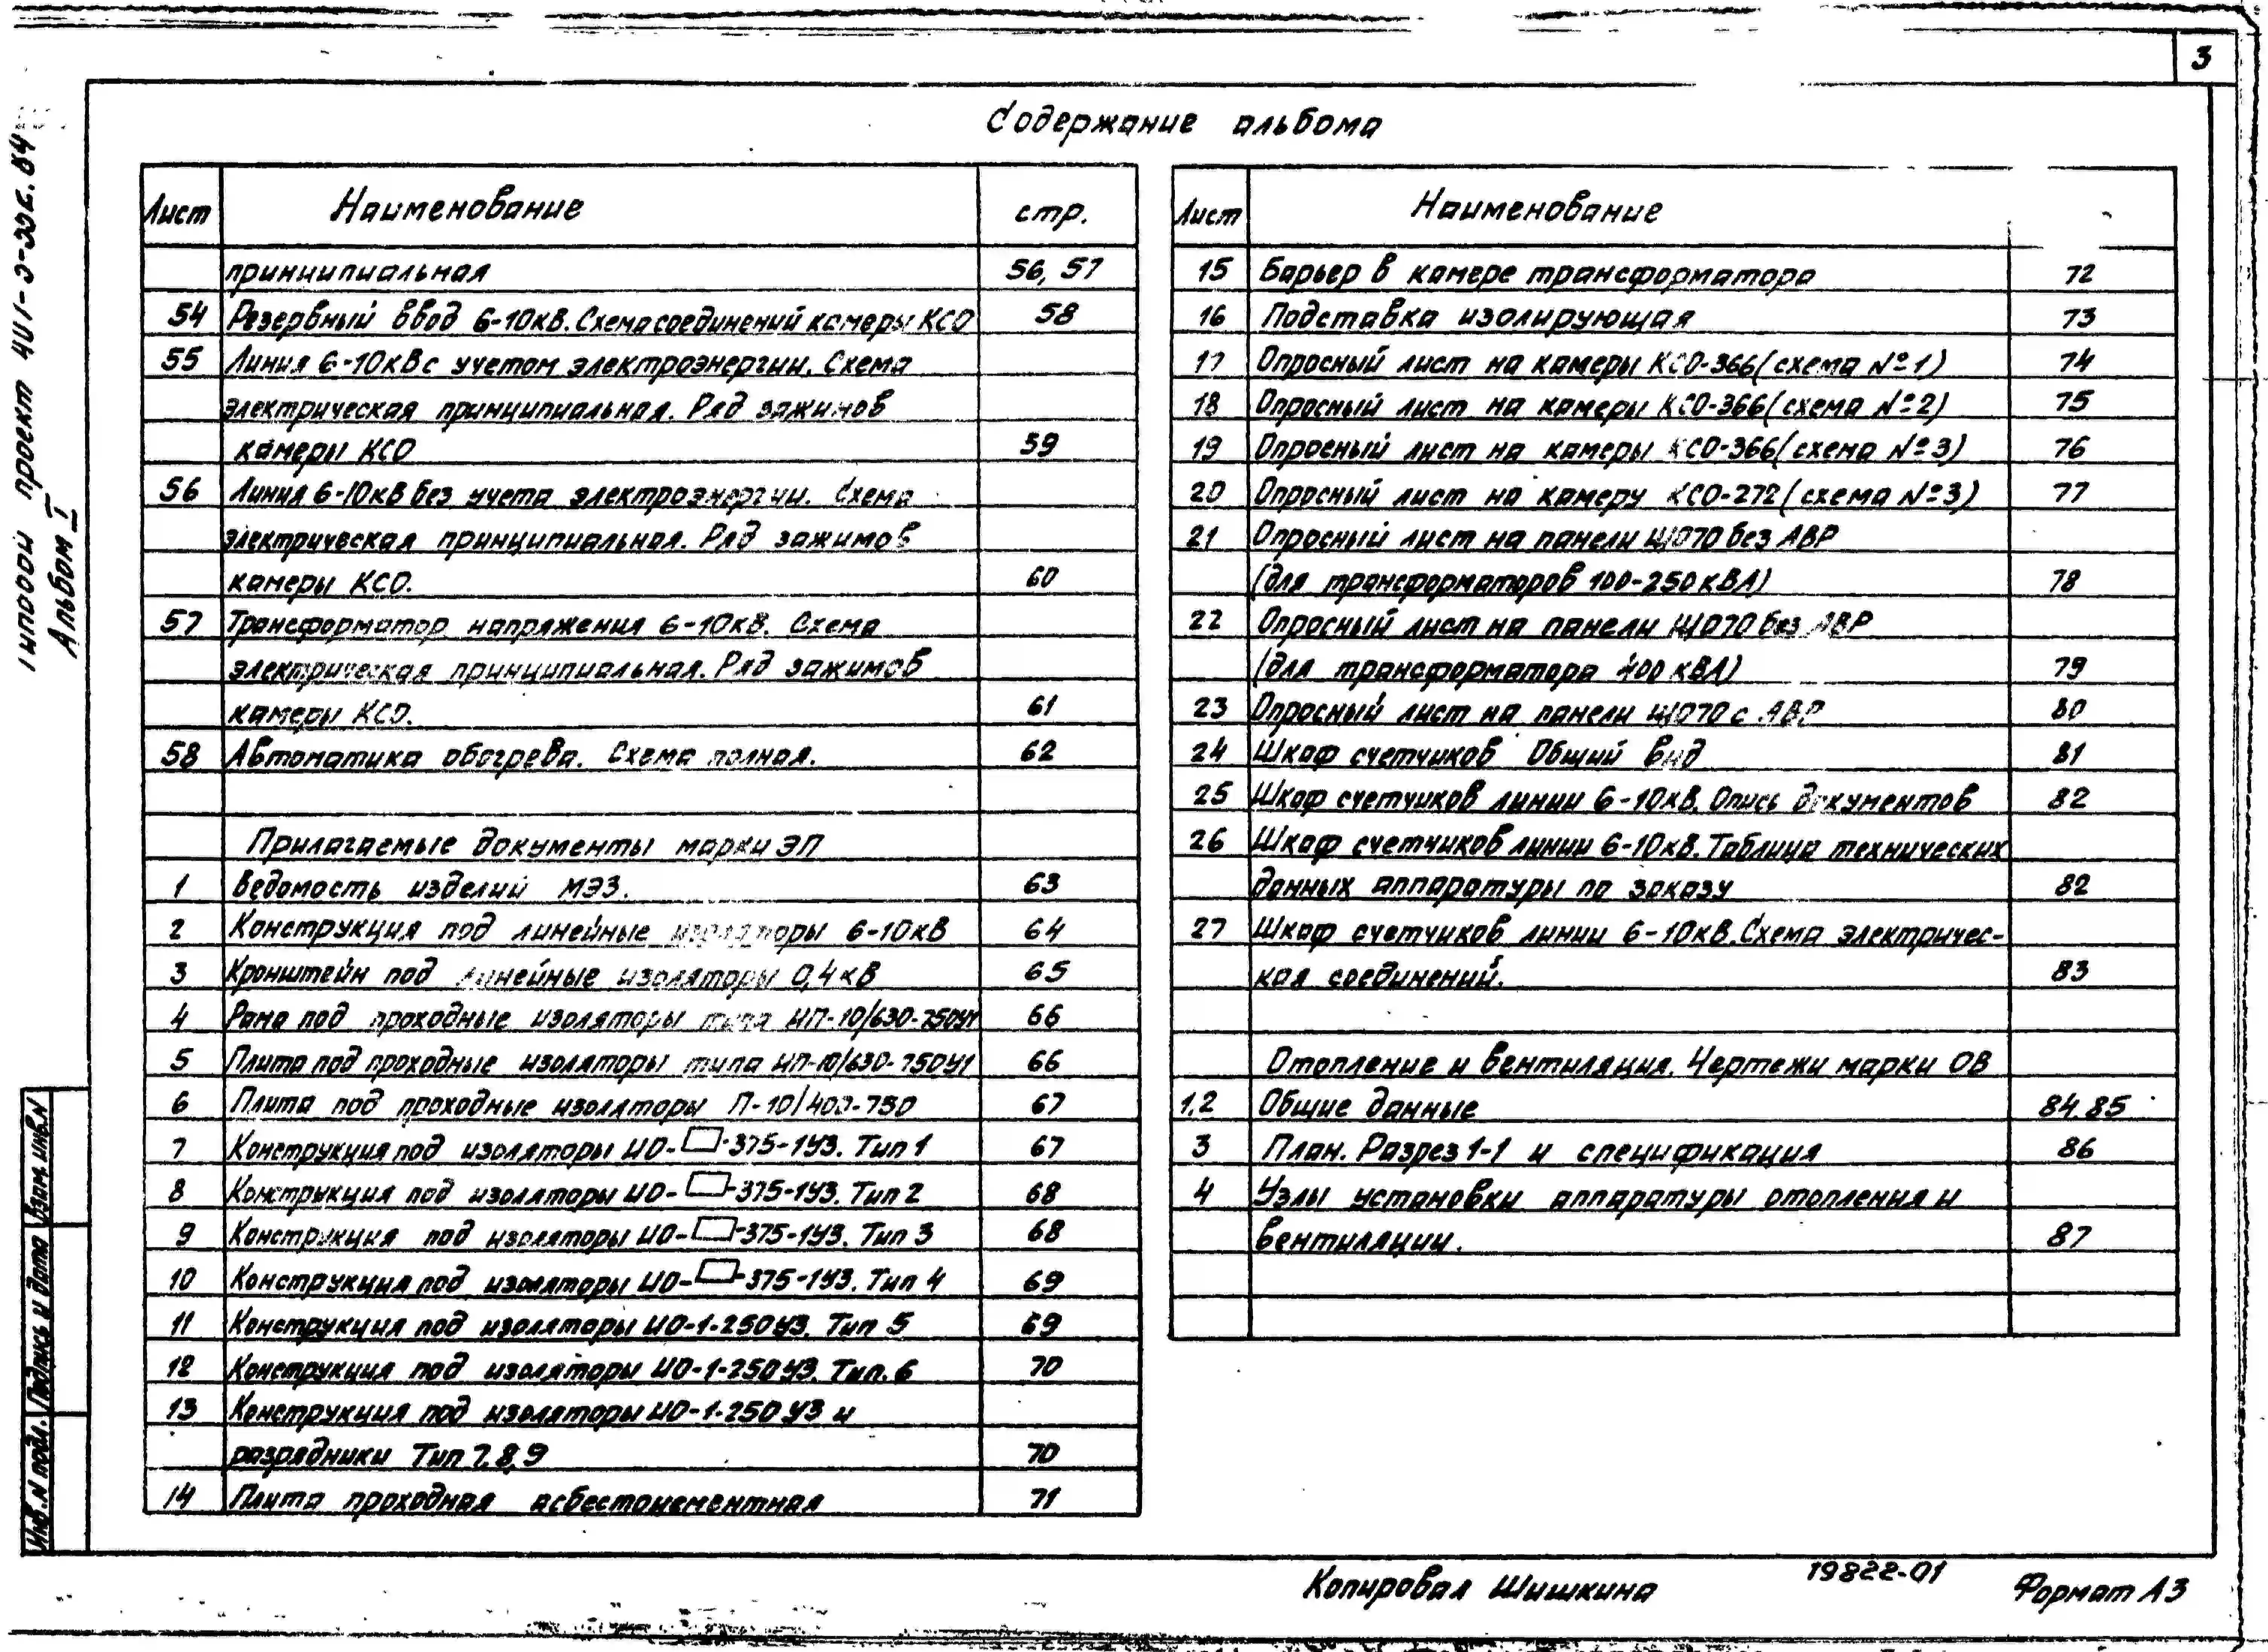 3
Содержание альбома
Лист Наименование стр.
принципиальная 56, 57
54 Резервный ввод 6-10кВ. Схема соединений камеры КСО 58
55 Линия 6-10кВ с учетом электроэнергии. Схема
электрическая принципиальная. Ряд зажимов
камеры КСО 59
56 Линия 6-10кВ без учета электроэнергии. Схема
электрическая принципиальная. Ряд зажимов
камеры КСО. 60
57 Трансформатор напряжения 6-10кВ. Схема
электрическая принципиальная. Ряд зажимов
камеры КСО. 61
58 Автоматика обогрева. Схема полная. 62
Прилагаемые документы марки ЭП
1 Ведомость изделий МЭЗ. 63
2 Конструкция под линейные изоляторы 6-10кВ 64
3 Кронштейн под линейные изоляторы 0,4кВ 65
4 Рама под проходные изоляторы типа ИП-10/630-750У1 66
5 Плита под проходные изоляторы типа ИП-10/630-750У1 66
6 Плита под проходные изоляторы П-10/400-750 67
7 Конструкция под изоляторы ИО-□-375-1У3. Тип 1 67
8 Конструкция под изоляторы ИО-□-375-1У3. Тип 2 68
9 Конструкция под изоляторы ИО-□-375-1У3. Тип 3 68
10 Конструкция под изоляторы ИО-□-375-1У3. Тип 4 69
11 Конструкция под изоляторы ИО-1-250У3. Тип 5 69
12 Конструкция под изоляторы ИО-1-250У3. Тип. 6 70
13 Конструкция под изоляторы ИО-1-250У3 и
разрядники Тип 7,8,9 70
14 Плита проходная асбестоцементная 71
Лист Наименование
15 Барьер в камере трансформатора 72
16 Подставка изолирующая 73
17 Опросный лист на камеры КСО-366 (схема №1) 74
18 Опросный лист на камеры КСО-366 (схема №2) 75
19 Опросный лист на камеры КСО-366 (схема №3) 76
20 Опросный лист на камеру КСО-272 (схема №3) 77
21 Опросный лист на панели ЩО70 без АВР
(для трансформаторов 100-250кВА) 78
22 Опросный лист на панели ЩО70 без АВР
(для трансформатора 400кВА) 79
23 Опросный лист на панели ЩО70 с АВР 80
24 Шкаф счетчиков Общий вид 81
25 Шкаф счетчиков линии 6-10кВ. Опись документов 82
26 Шкаф счетчиков линии 6-10кВ. Таблица технических
данных аппаратуры по заказу 82
27 Шкаф счетчиков линии 6-10кВ. Схема электричес-
кая соединений. 83
Отопление и вентиляция. Чертежи марки ОВ
1,2 Общие данные 84,85
3 План. Разрез 1-1 и спецификация 86
4 Узлы установки аппаратуры отопления и
вентиляции. 87
Типовой проект
Альбом I
Взам. инв.N
Подпись и дата
Инв.N подл.
Копировал Шишкина
19822-01
Формат А3